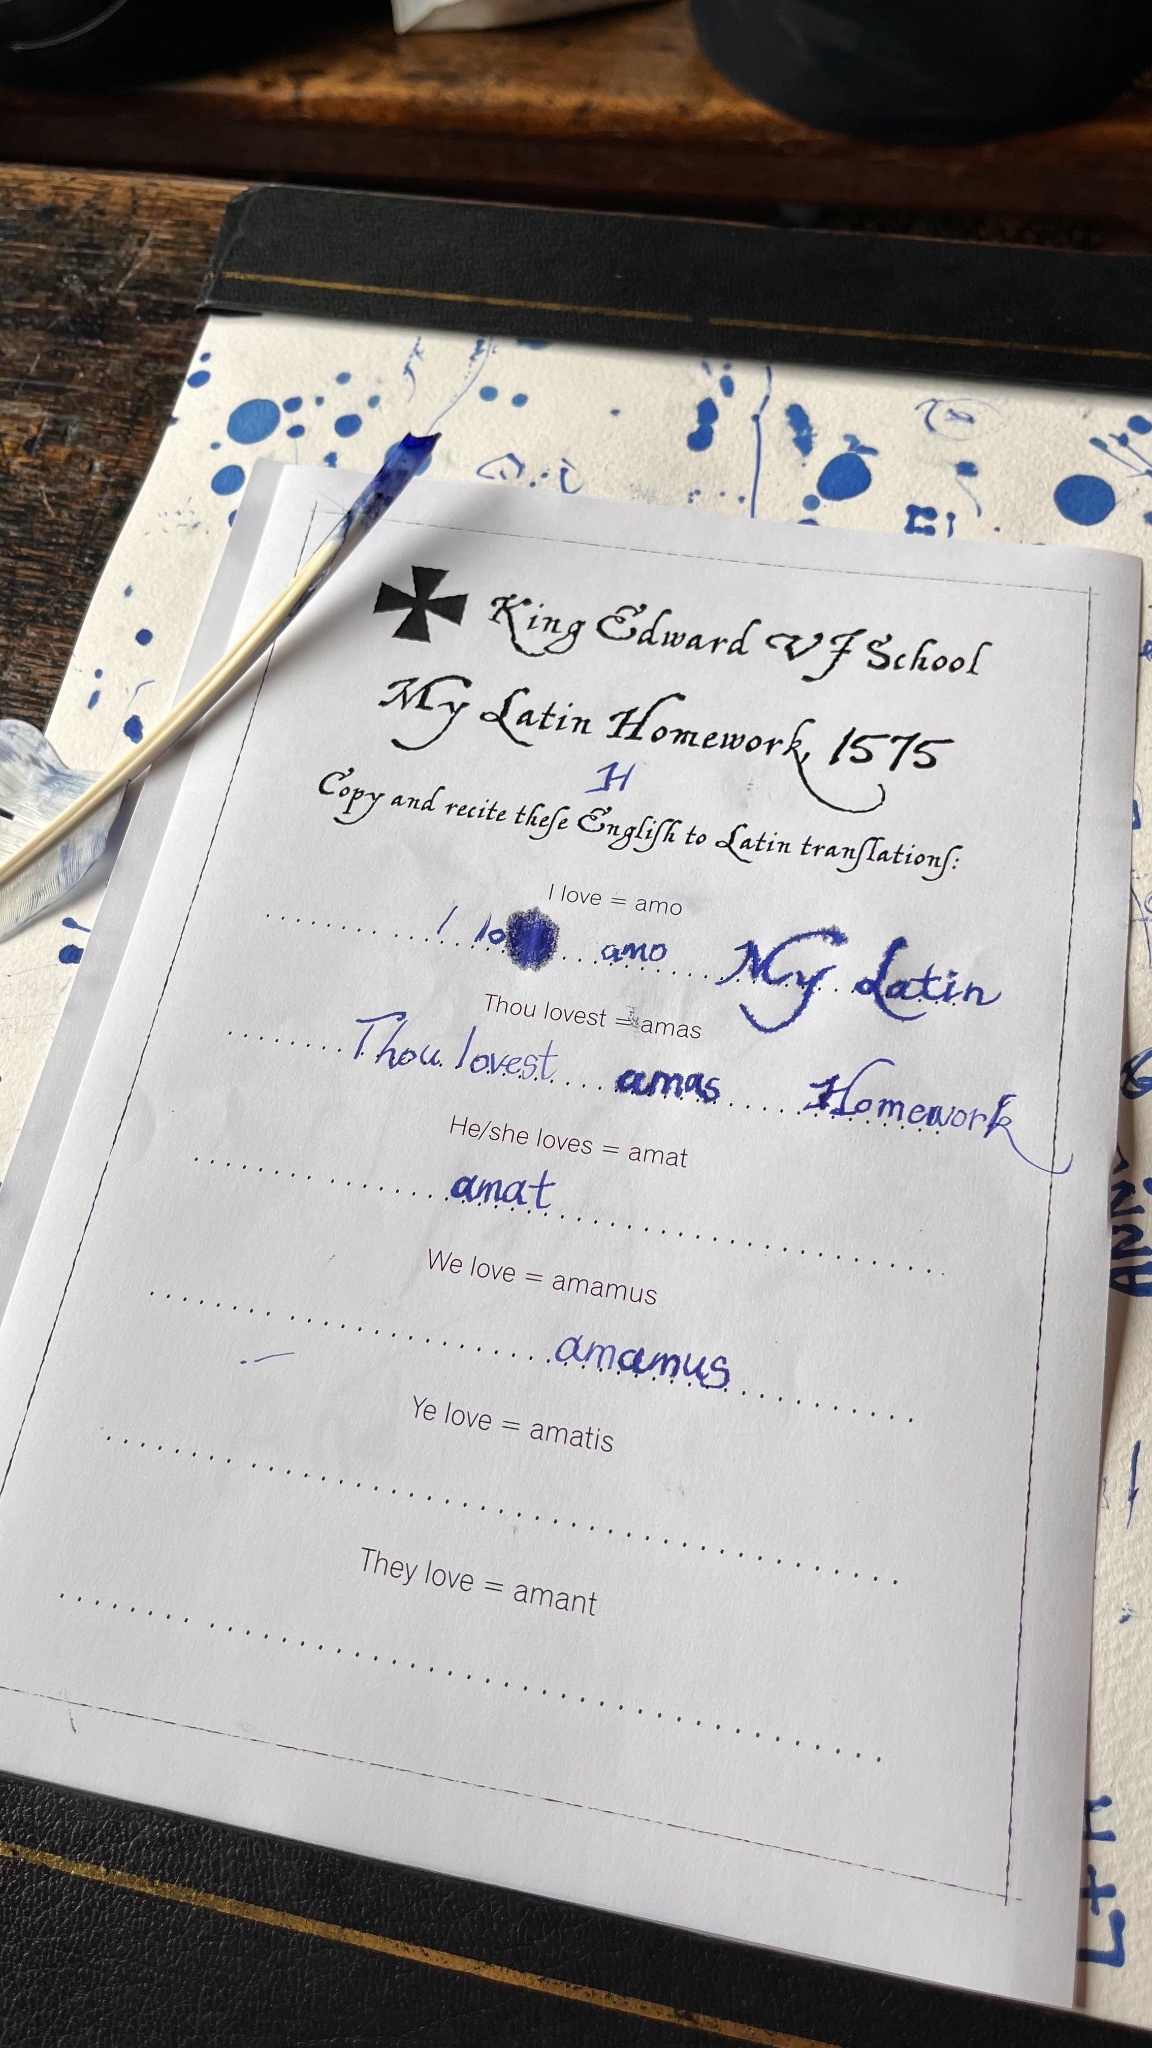 King Edward VI School
My Latin Homework, 1575
H
Copy and recite theſe Engliſh to Latin tranſlationſ:
I love = amo
I lo amo My Latin
Thou lovest = amas
Thou lovest amas Homework
He/she loves = amat
amat
We love = amamus
amamus
Ye love = amatis
They love = amant
L+H